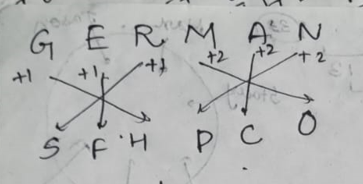 G E R M A N
+1 +1 +1 +2 +2 +2
S F H P C O